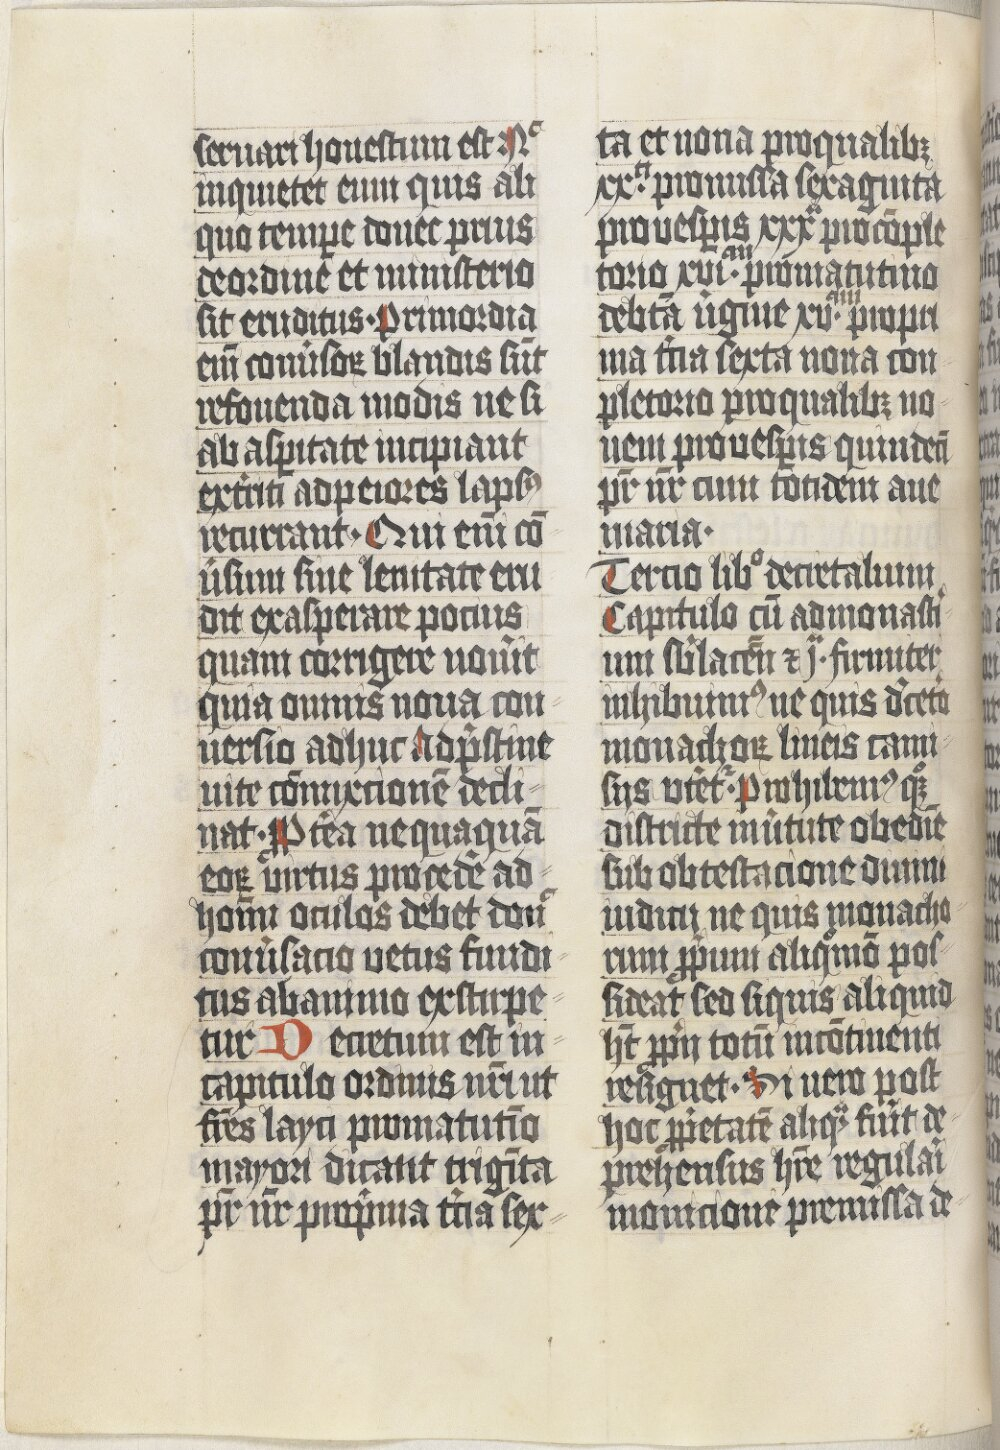 seruari honestum est Nͨ
inquietet eum quis ali
quo tempe donec prius
de ordine et ministerio
sit eruditus· Primordia
em̄ conu̓soꝝ blandis sūt
refouenda modis ne si
ab asꝑitate incipiant
ext̓riti ad peiores lapsꝰ
recurrant· Qui em̄ cō
u̓sum sine lenitate eru
dit exasperare pocius
quam corrigere nouit
quia omnis noua con⸗
uersio adhuc ad pͥstine
uite cōmixcionē decli⸗
nat· Pͣt̓ea nequaquā
eoꝝ uirtus procedē ad⸗
hom̄u oculos debet donͨ
conu̓sacio uetus fundi⸗
tus ab animo exstirpe⸗
tur Decretum est in⸗
capitulo ordinis nr̄i ut
fr̄es layci pro matutīo
mayori dicant triginta
pr̄ nr̄ pro pͥma t̓cia sex⸗
ta et nona pro qualibꝫ
xx.ͭͣ pro missa sexaginta
pro uesꝑis xxxͣ pro cōple
torio xuiͣͫ· pro matutino
de btā u̓gine xu·ͣͫ pro pri
ma t̓cia sexta nona con⸗
pletorio pro qualibꝫ no⸗
uem pro uesꝑis quindecī
pr̄ nr̄ cum totidem aue
maria·
Tercio libͦ decretalium
Capitulo cū ad monasti⸗
um sb̓lacen̄ ⁊ jͣ· firmiter
inhibuimꝰ ne quis d̓ cet̓o
monachoꝝ lineis cami⸗
siis vtet͛· Prohibemꝰ qͦꝫ
districte in u̓tute obediē
sub obtestacione diuini
iudicii ne quis monacho
rum ꝓpium aliqͦ mō pos⸗
sideat͛ sed siquis aliquid
ht̄ ꝓpͥū totū incōtinenti
resignet· Si uero post
hoc ꝓpͥetatē aliqͣ fu̓it de⸗
prehensus hr̄e regulari
monicione premissa de⸗